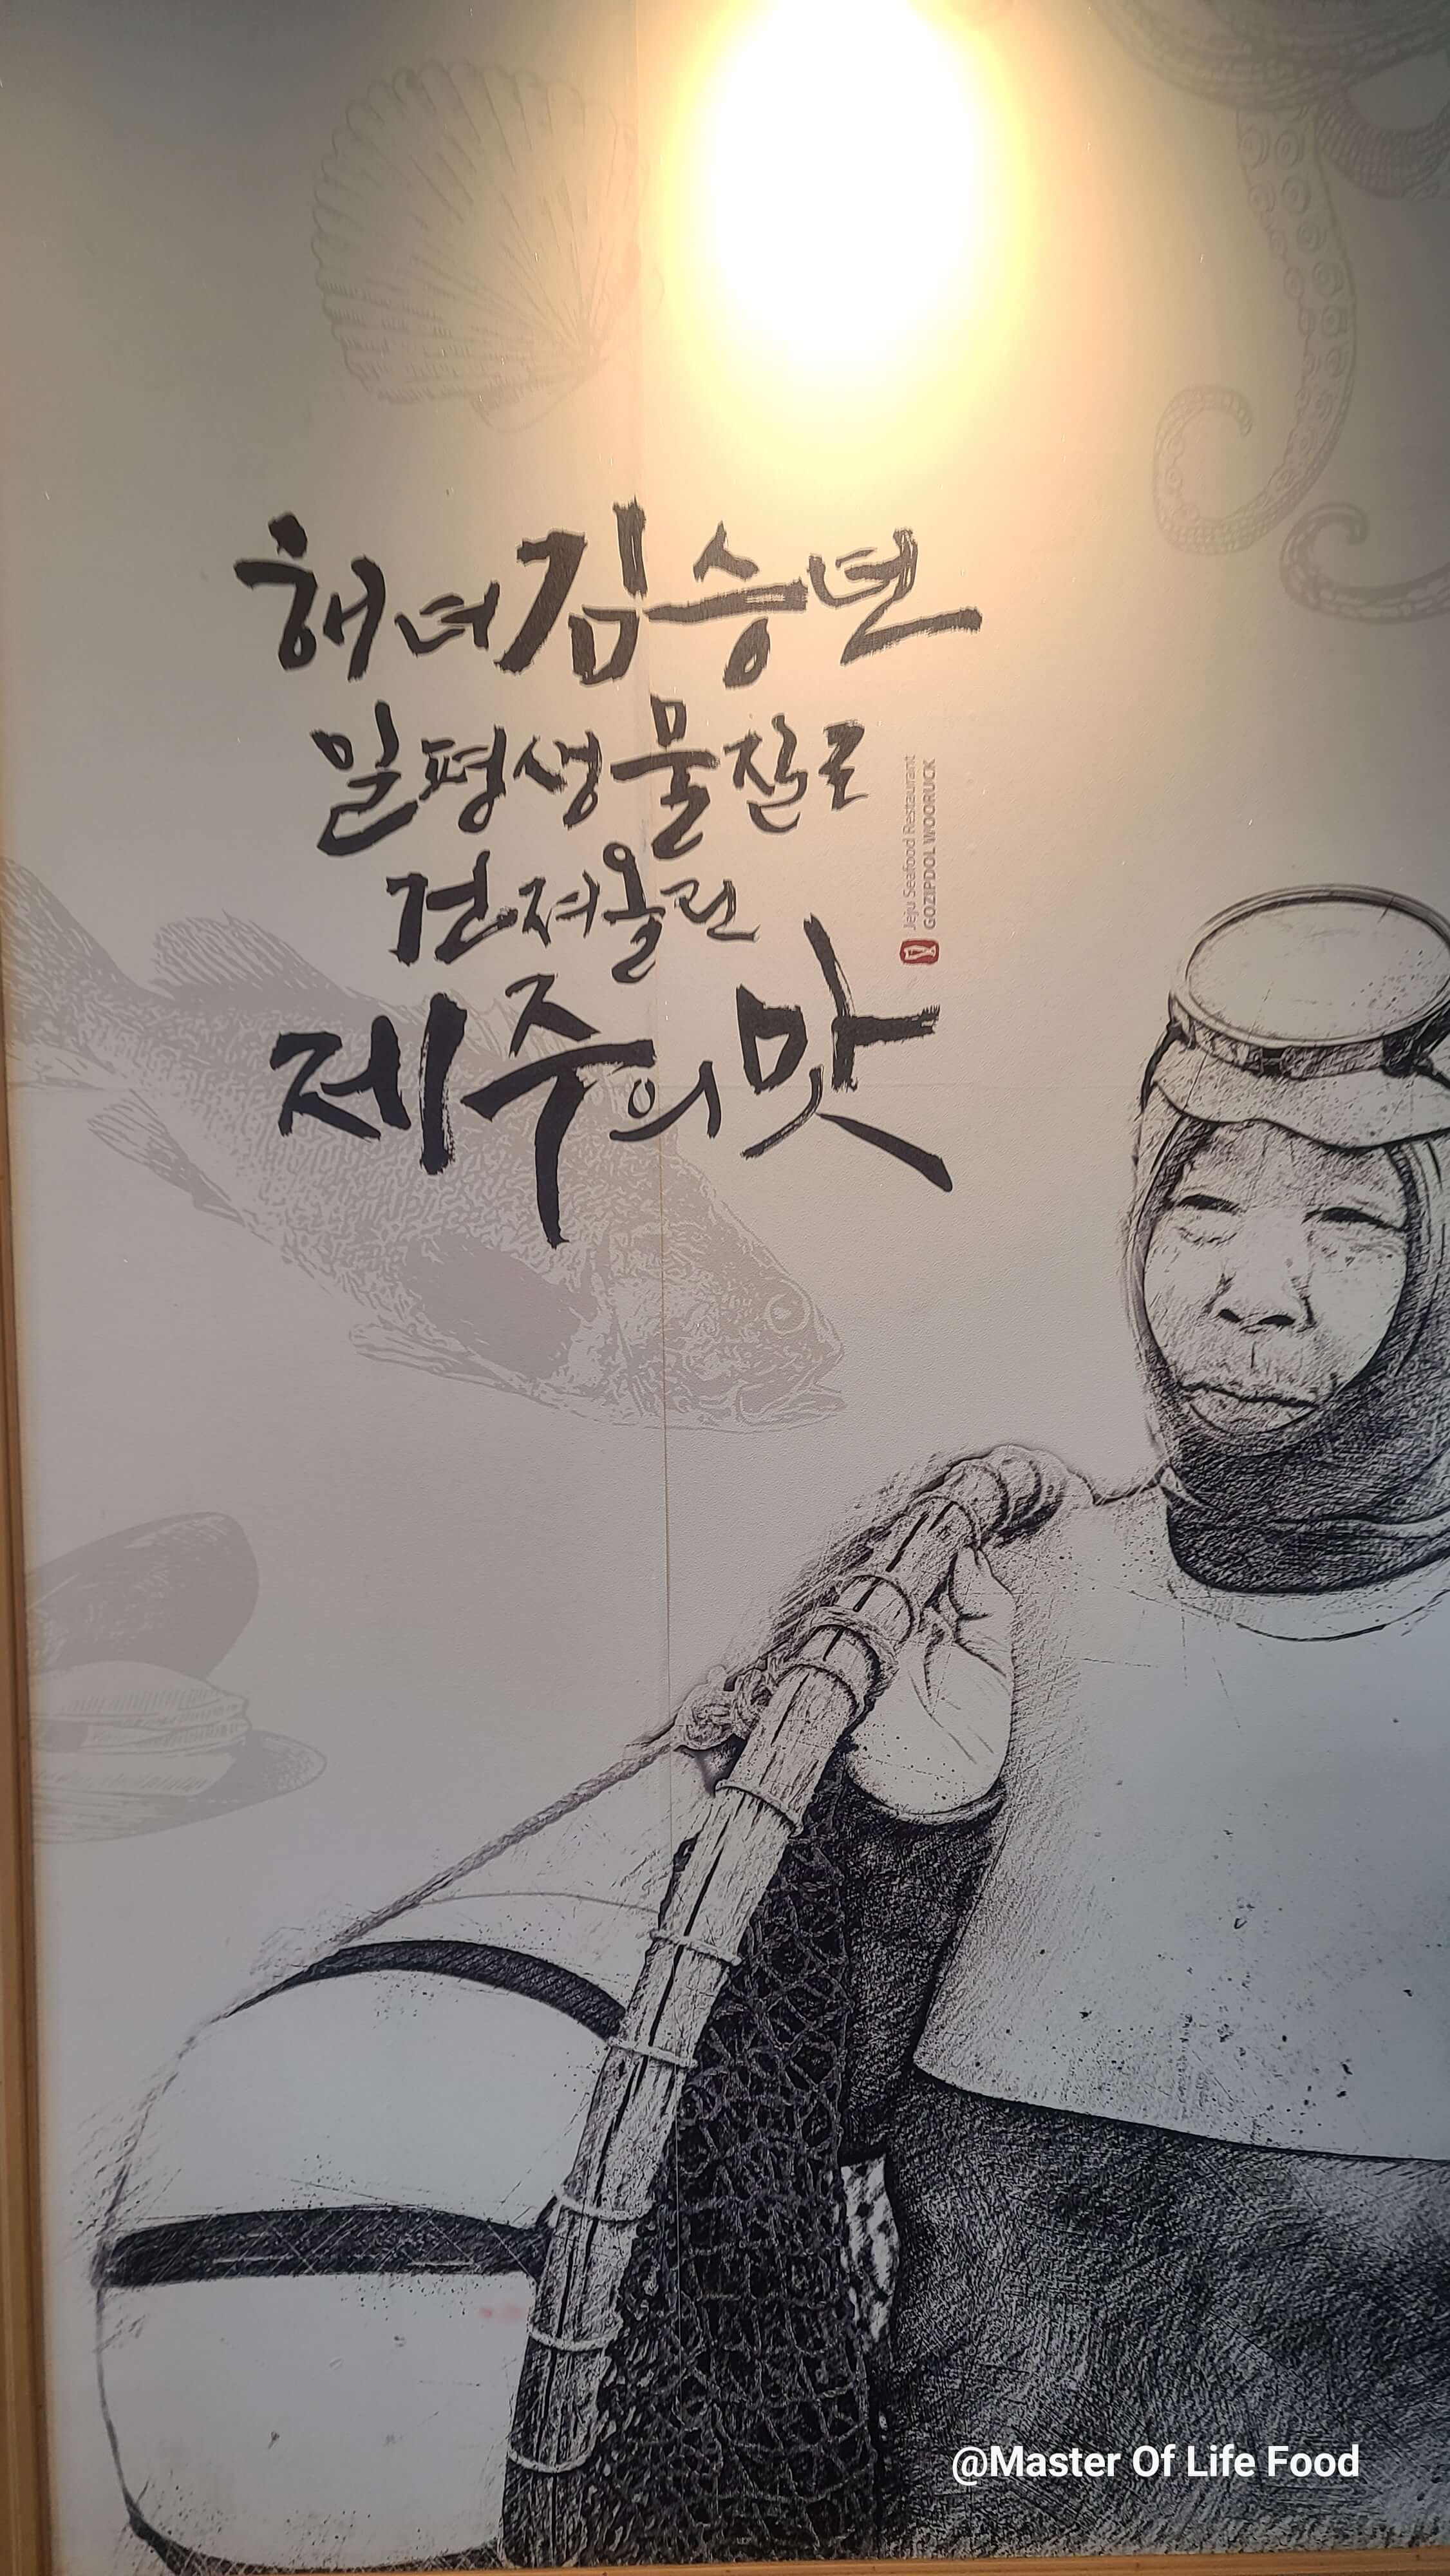 해녀김승년
일평생물질로
건져올린
제주의맛
Jeju Seafood Restaurant
GOZIPDOL WOORUCK
@Master Of Life Food